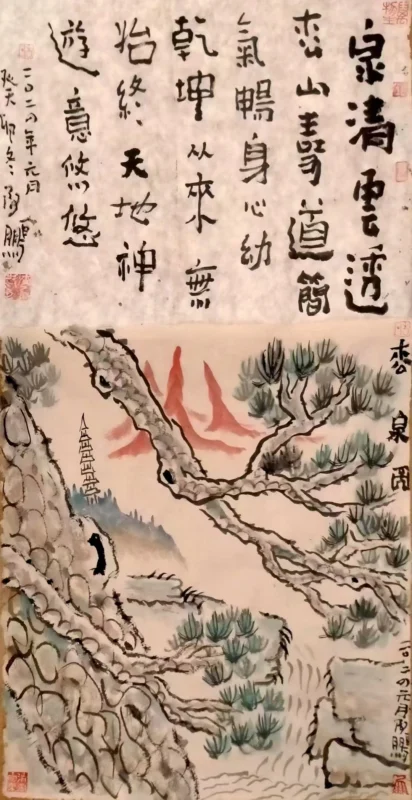 泉清雲透
枩山壽道簡
氣暢身心幼
乾坤从來無
始終天地神
遊意悠悠
二〇二四年元月
癸卯冬 鵬
枩泉图
二〇二四元月 鵬